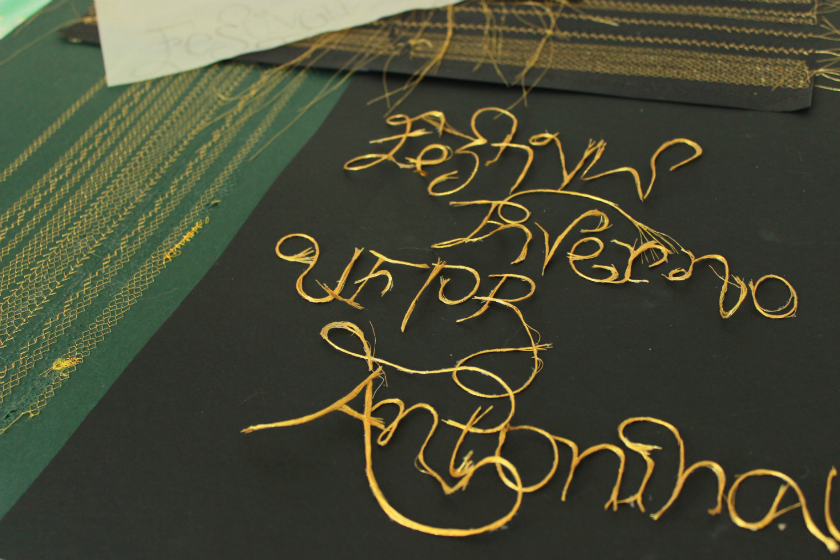 Festival
Festival
Inverno
UFPR
Antonina